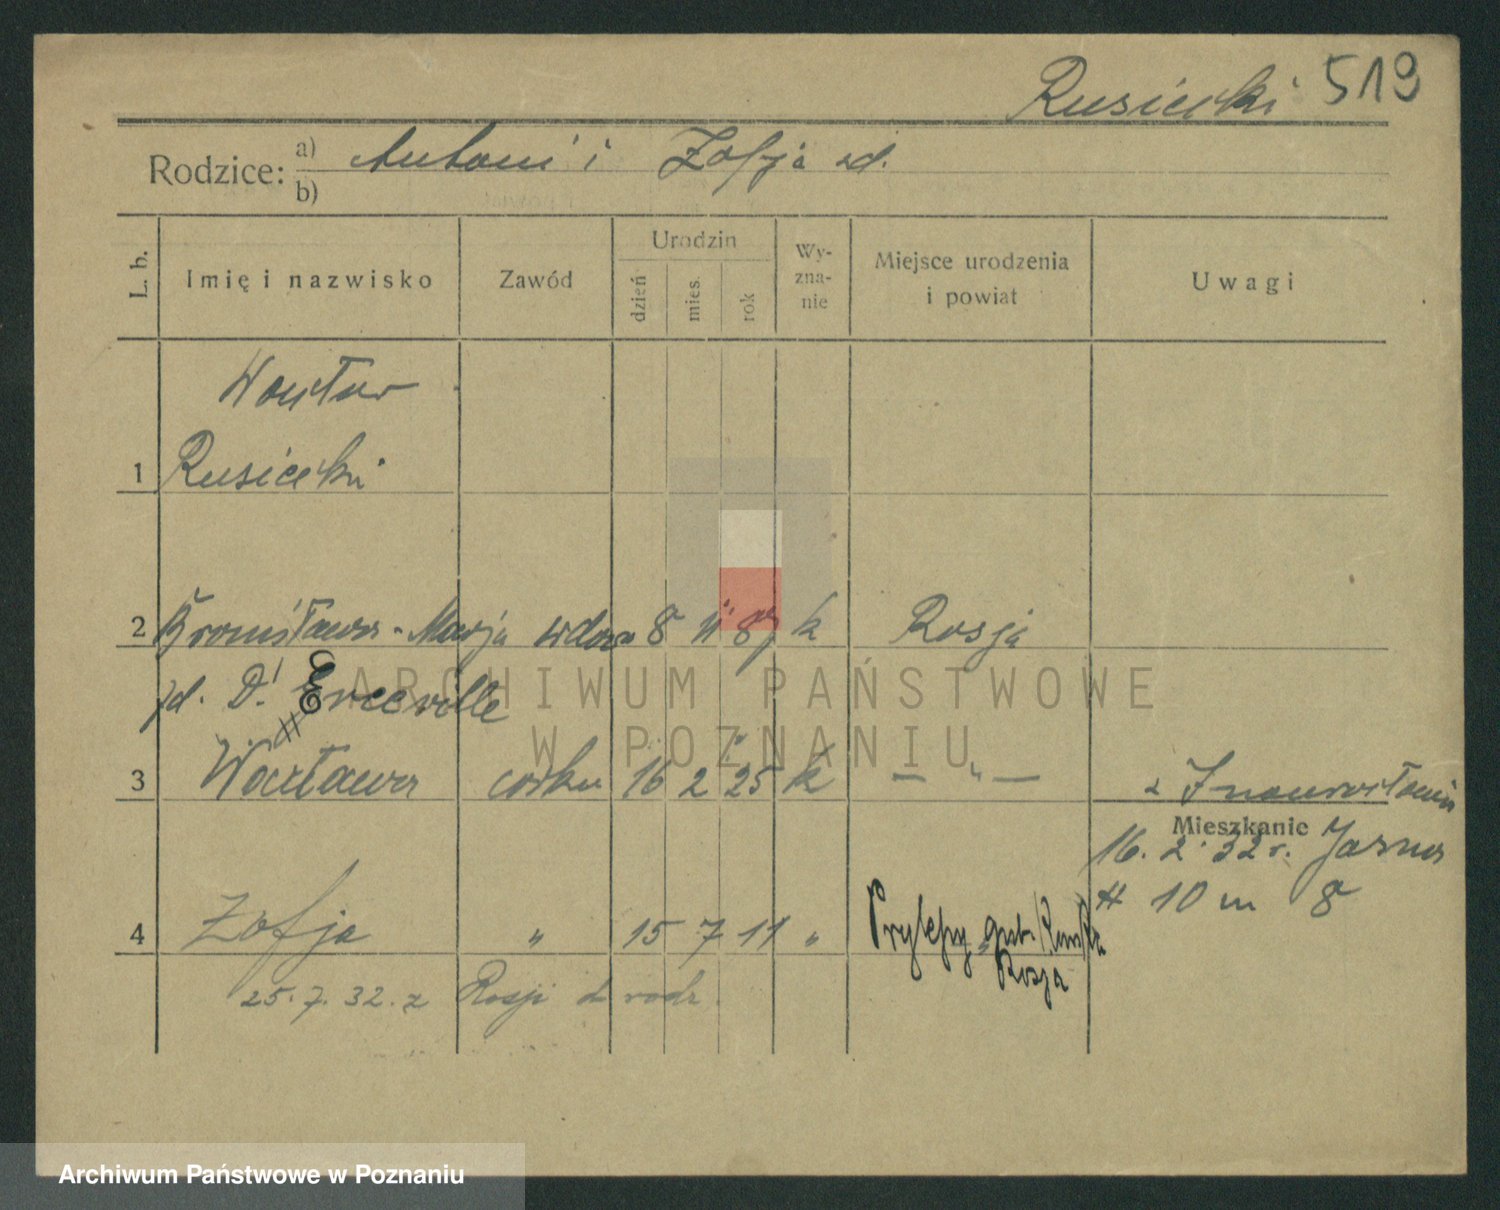 Rusiecki 519
Rodzice: a) Antoni i Zofja zd.
b)
L. b. Imię i nazwisko Zawód Urodzin dzień mies. rok Wy-zna-nie Miejsce urodzenia i powiat Uwagi
Wacław
1 Rusiecki
2 Bronisława-Marja wdowa 8 11 87 k Rosja
zd. D'Erceville
3 Wacława córka 16 2 25 k — " — z Inowrocławia
Mieszkanie
16. 2. 32 r. Jasna
# 10 m 8
4 Zofja " 15 7 11 " gub.
Rosja
25. 7. 32. z Rosji
ARCHIWUM PAŃSTWOWE
W POZNANIU
Archiwum Państwowe w Poznaniu